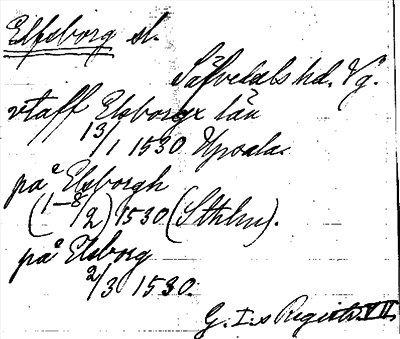 Elfsborg sl.
Säfvedals hd. Vg.
vtaff Elsborgx län
13/1 1530 Upsala.
på Elsborgh
(1–8/2) 1530 (Sthlm).
på Elsborg
2/3 1530.
G. I.s Registr. VII